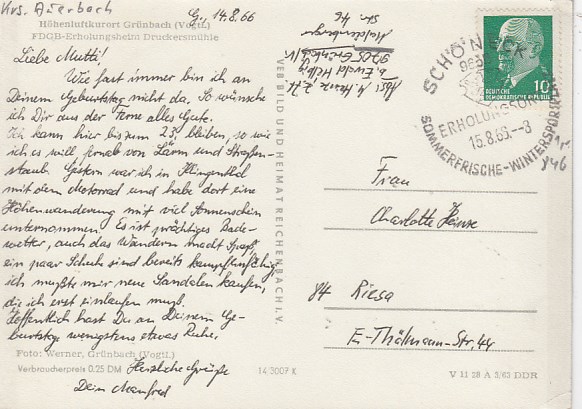 Krs. Auerbach
Höhenluftkurort Grünbach (Vogtl.)
FDGB-Erholungsheim Druckersmühle
G., 14.8.66
Liebe Mutti!
Wie fast immer bin ich an
Deinem Geburtstag nicht da. So wünsche
ich Dir aus der Ferne alles Gute.
Ich kann hier bis zum 23. bleiben, so wie
ich es will fernab von Lärm und Straßen-
staub. Gestern war ich in Klingenthal
mit dem Motorrad und habe dort eine
Höhenwanderung mit viel Sonnenschein
unternommen. Es ist prächtiges Bade-
wetter, auch das Wandern macht Spaß,
ein paar Schuh sind bereits kampfunfähig,
ich mußte mir neue Sandalen kaufen,
die ich erst einlaufen muß.
Hoffentlich hast Du an Deinem Ge-
burtstag wenigstens etwas Ruhe.
Herzliche Grüße
Dein Manfred
Foto: Werner, Grünbach (Vogtl.)
Verbraucherpreis 0.25 DM
14 3007 K
VEB BILD UND HEIMAT REICHENBACH I. V.
Abs. M. Heinze z. Zt.
b. Ewald
9705 Grünbach i/V
Str. 46
SCHÖNECK
965
ERHOLUNGSORT
15.8.66.-8
SOMMERFRISCHE-WINTERSPORTPLATZ
DEUTSCHE
DEMOKRATISCHE REPUBLIK
10
Frau
Charlotte Heinze
84 Riesa
E.-Thälmann-Str. 44
V 11 28 A 3/63 DDR